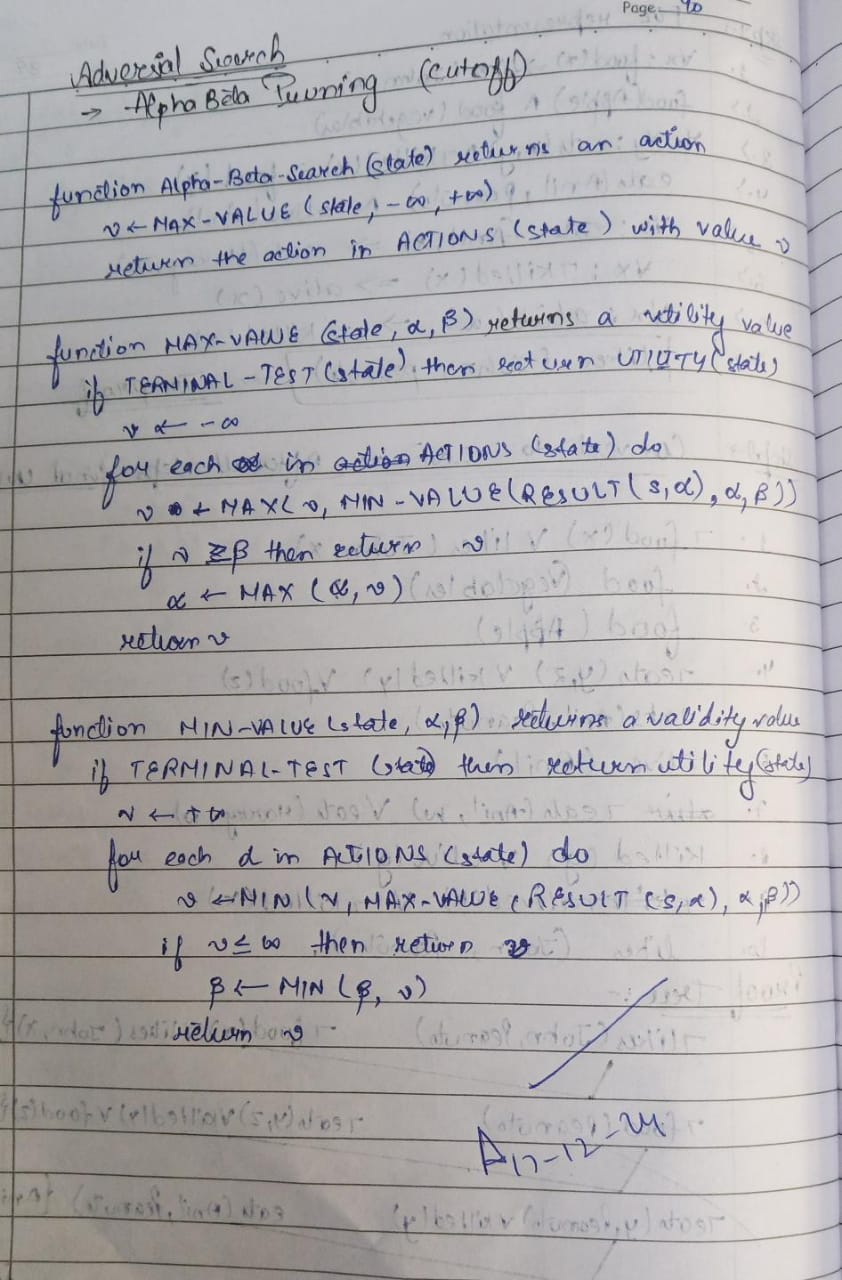 Page 40
Adversial Search
→ Alpha Beta Pruning (cutoff)
function Alpha-Beta-Search (state) returns an action
v ← MAX-VALUE (state, -∞, +∞)
return the action in ACTIONS (state) with value v
function MAX-VALUE (state, α, β) returns a utility value
if TERMINAL-TEST (state) then return UTILITY (state)
v ← -∞
for each in ACTIONS (state) do
v ← MAX(v, MIN-VALUE(RESULT(s,α), α, β))
if v ≥ β then return v
α ← MAX (α, v)
return v
function MIN-VALUE (state, α, β) returns a validity value
if TERMINAL-TEST (state) then return utility (state)
v ← +∞
for each α in ACTIONS (state) do
v ← MIN (v, MAX-VALUE (RESULT (s,α), α, β))
if v ≤ ∞ then return v
β ← MIN (β, v)
return v